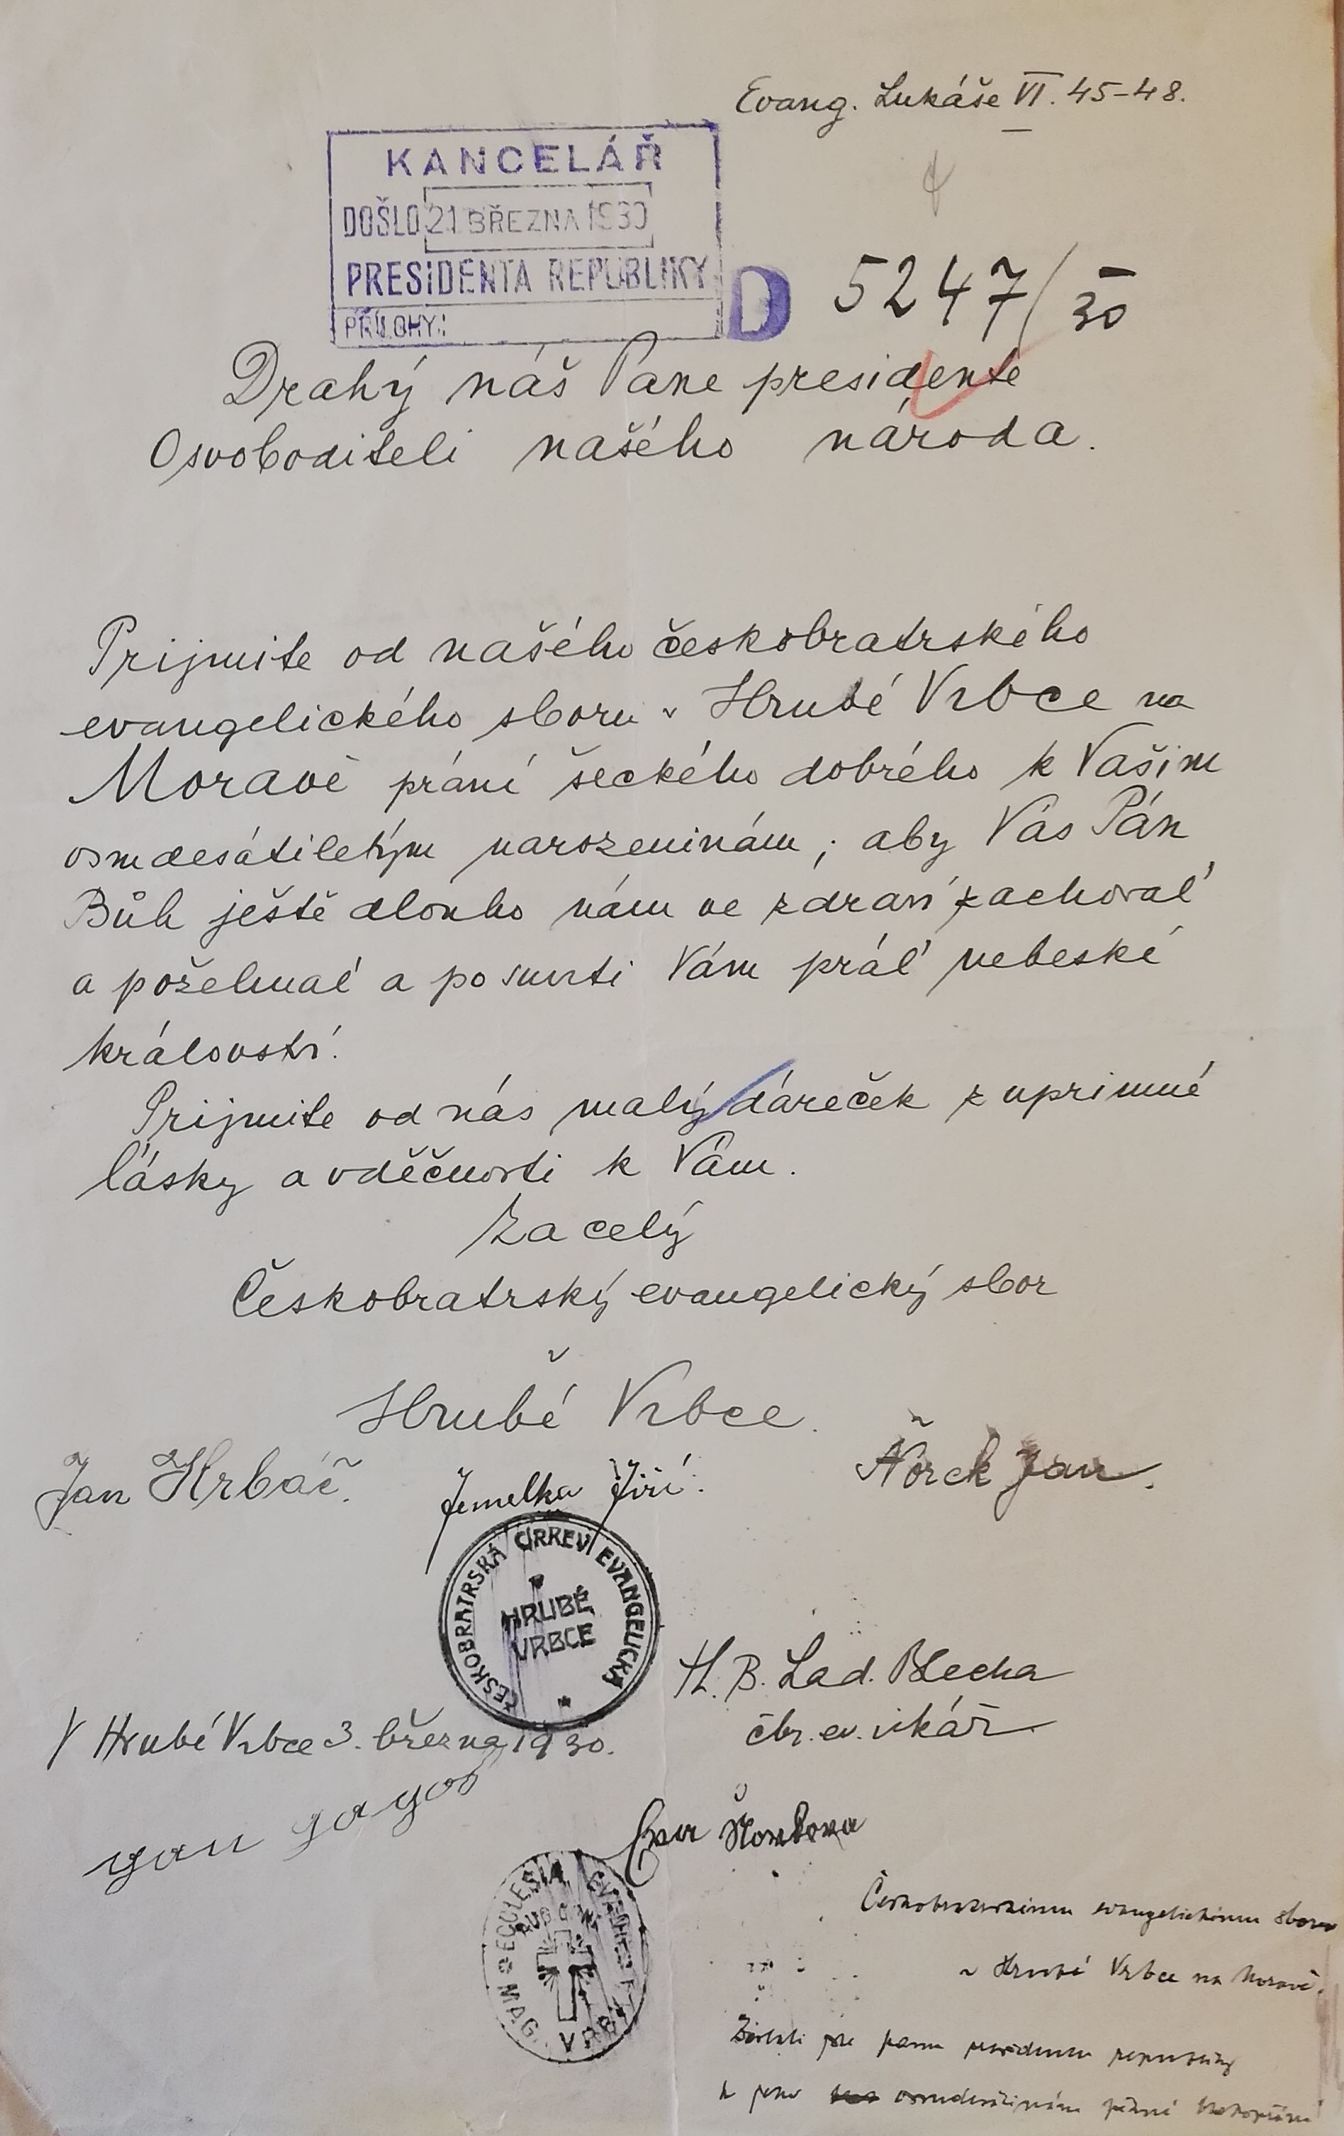 Evang. Lukáše VI. 45-48.
KANCELÁŘ
DOŠLO 21 BŘEZNA 1930
PRESIDENTA REPUBLIKY
PŘÍLOHY:
D 5247/30
Drahý náš Pane presidente
Osvoboditeli našého národa.
Prijmite od našého českobratrského
evangelického sboru v Hrubé Vrbce na
Moravě práni šeckého dobrého k Vašim
osmdesátiletým narozeninám, aby Vás Pán
Bůh ještě dlouho nám ve zdraví zachovaľ
a požehnaľ a po smrti Vám práľ nebeské
královstí.
Prijmite od nás malý dáreček z uprimné
ľásky a vděčnosti k Vám.
Za celý
Českobratrský evangelický sbor
v
Hrubé Vrbce.
Jan Hrbáč. Jemelka Jiří. Ňorek Jan.
ČESKOBRATRSKÁ CÍRKEV EVANGELICKÁ
HRUBÉ
VRBCE
Lad. Blecha
čbr. ev. vikář.
V Hrubé Vrbce 3. března 1930.
Jan
Eva
ECCLESIA
MAG. VRB
Českobratrskému evangelickému sboru
v Hrubé Vrbce na Moravě.
panu presidentu republiky
k jeho osmdesátinám